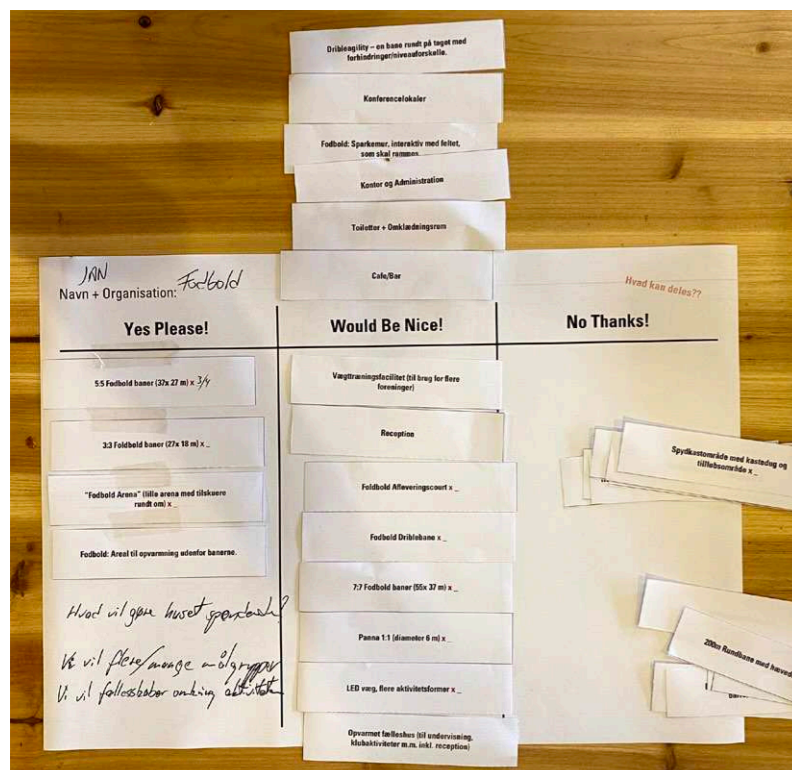 Dribleagility – en bane rundt på taget med
forhindringer/niveauforskelle.
Konferencelokaler
Fodbold: Sparkemur, interaktiv med feltet,
som skal rammes.
Kontor og Administration
Toiletter + Omklædningsrum
Cafe/Bar
JAN
Navn + Organisation: Fodbold
Hvad kan deles??
Yes Please!
Would Be Nice!
No Thanks!
5:5 Fodbold baner (37x 27 m) x 3/4
3:3 Foldbold baner (27x 18 m) x _
"Fodbold Arena" (lille arena med tilskuere
rundt om) x _
Fodbold: Areal til opvarmning udenfor banerne.
Hvad vil gøre huset spændende?
Vi vil flere/mange målgrupper
Vi vil fællesskaber omkring aktiviteten
Vægttræningsfacilitet (til brug for flere
foreninger)
Reception
Foldbold Afleveringscourt x _
Fodbold Driblebane x _
7:7 Fodbold baner (55x 37 m) x _
Panna 1:1 (diameter 6 m) x _
LED væg, flere aktivitetsformer x _
Opvarmet fælleshus (til undervisning,
klubaktiviteter m.m. inkl. reception)
Spydkastområde med kastedng og
tilløbsområde x _
200m Rundbane med hæved